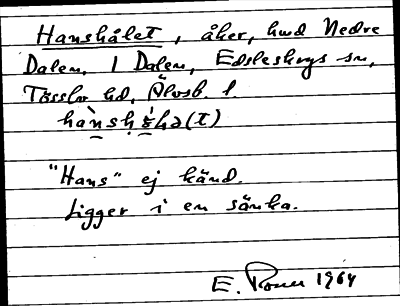 Hanshålet, åker, hmd Nedre
Dalen, 1 Dalen, Edsleskogs sn,
Tössbo hd, Älvsb. l
"Hans" ej känd.
Ligger i en sänka.
E. 1964